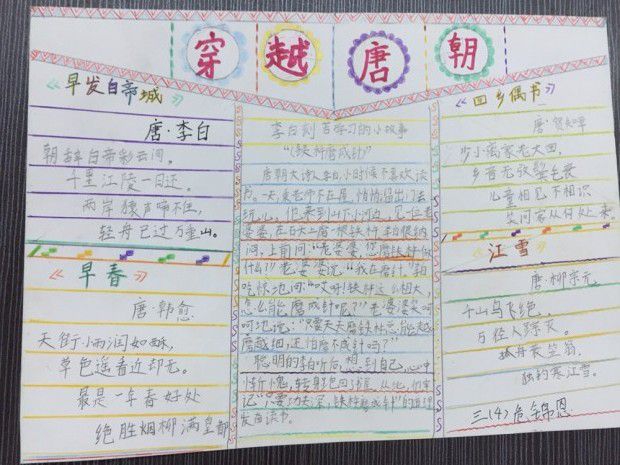 穿越唐朝
《早发白帝城》
唐·李白
朝辞白帝彩云间。
千里江陵一日还。
两岸猿声啼不住,
轻舟已过万重山。
《早春》
唐 韩愈
天街小雨润如酥,
草色遥看近却无。
最是一年春好处
绝胜烟柳满皇都
李白刻苦学习的小故事
"(铁杵磨成针)"
唐朝大诗人李白,小时候不喜欢读
书。一天,乘老师不在屋,悄悄溜出门去
玩儿。他来到山下小河边,见一位老
婆婆,在石头上磨一根铁杵。李白很纳
闷,上前问:"老婆婆,您磨铁杵做
什么?"老婆婆说:"我在磨针。"李白
吃惊地问:"哎呀!铁杵这么粗大,
怎么能磨成针呢?"老婆婆笑呵
呵地说:"只要天天磨铁杵总能越
磨越细,还怕磨不成针吗?"
聪明的李白听后,想到自己,心中
惭愧,转身跑回了书屋。从此,他牢
记"只要功夫深,铁杵磨成针"的道理
发奋读书。
《回乡偶书》
唐 贺知章
少小离家老大回,
乡音无改鬓毛衰
儿童相见不相识
笑问客从何处来。
《江雪》
唐·柳宗元
千山鸟飞绝,
万径人踪灭。
孤舟蓑笠翁,
独钓寒江雪。
三(4)危锦恩